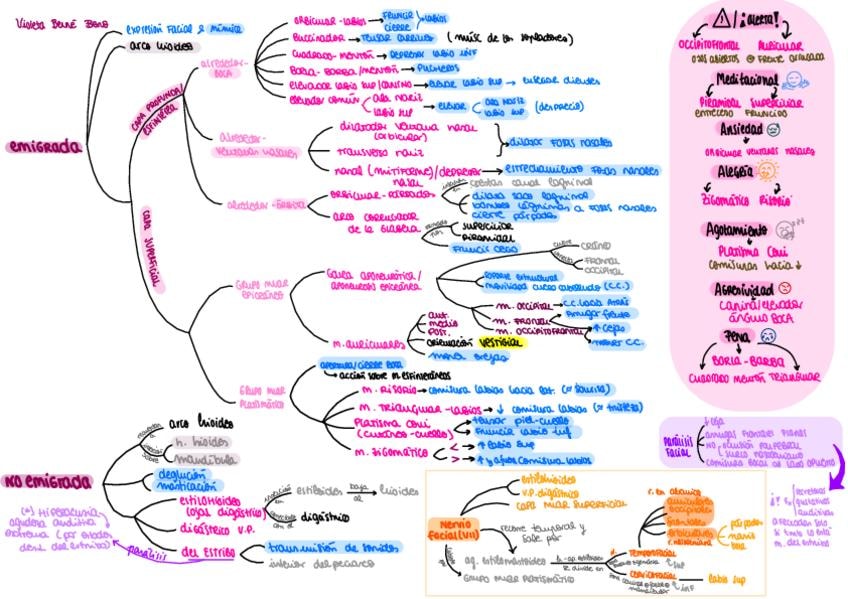 Violeta Berné Bono
EMIGRADA
expresión Facial e mímica
arco hioides
CAPA PROFUNDA/
ESFINTÉRICA
CAPA SUPERFICIAL
alrededor-
BOCA
orbicular-labios → FRUNCIR
CIERRE
labios
buccinador → Tensar carrillos (músc de los sopladores)
cuadrado-mentón → depresor labio inf
BORLA-BARBA/mentón → pucheros
elevador labio sup/canino → elevar labio sup → enseñar dientes
elevador común
Ala nariz
labio sup
elevar
Ala nariz
labio sup
(desprecio)
alrededor-
ventanas nasales
dilatador ventana nasal
(orbicular)
transverso nariz
dilatar Fosas nasales
nasal (mirtiforme)/depresor → estrechamiento Fosas nasales
nasal
alrededor-órbita
orbicular-párpados
crestas canal lagrimal
dilata saco lagrimal
bombea lágrimas a Fosas nasales
cierre párpados
arco corrugador
de la glabela
superciliar
Piramidal
Fruncir ceño
Grupo musc
epicraneo
Galea aponeurótica/
aponeurosis epicránea
cubre
cráneo
FRONTAL
OCCIPITAL
soporte estructural
moviliza cuero cabelludo (C.C.)
m. OCCIPITAL → C.C. hacia atrás
m. FRONTAL → Arrugar frente
m. OCCIPITOFRONTAL
↑ cejas
mover C.C.
m. auriculares
ant.
medio
post.
orientación VESTIGIAL
mover orejas
Grupo musc
Platismático
apertura/cierre boca
acción sobre m. esfinterianos
m. Risorio → comisura labios hacia lat. (≈ sonrisa)
m. TRIANGULAR-LABIOS → ↓ comisura labios (≈ tristeza)
Platisma coli
(cutáneo-cuello)
tensar piel-cuello
Fruncir labio inf
m. ZIGOMÁTICO
< → ↑ labio sup
> → ↑ y afuera comisura labios
NO EMIGRADA
arco hioides
h. hioides
mandíbula
deglución
masticación
estilohioideo
(ojal digástrico)
estiloides
baja
al
hioides
digástrico
digástrico v.p.
del estribo
transmisión de sonidos
interior del peñasco
parálisis
(*) Hiperacusia
agudeza auditiva
extrema (por estado
dent del estribo)
Nervio
facial (VII)
estilohioideo
v.p. digástrico
capa musc superficial
recorre temporal y
sale por
ag. estilomastoideo
se divide en
Grupo musc platismático
r. en abanico
auriculares
occipitales
frontales
párpados
nariz
boca
TEMPOROFACIAL
sup
CERVICOFACIAL
inf
labio sup
⚠/¡alerta!
OCCIPITOFRONTAL
Auricular
ojos abiertos
frente arrugada
Meditacional
Piramidal
Superciliar
entrecejo fruncido
Ansiedad
orbicular ventanas nasales
Alegría
Zigomático
Risorio
Agotamiento
Platisma coli
comisuras hacia ↓
Agresividad
Canino/elevador
ángulo boca
Pena
BORLA-BARBA
cuadrado mentón
Triangular
Parálisis
Facial
↓ceja
arrugas frontales planas
NO oclusión palpebral
comisura bucal al lado opuesto
auditivas
afectadas solo
si tmb lo está
m. del estribo